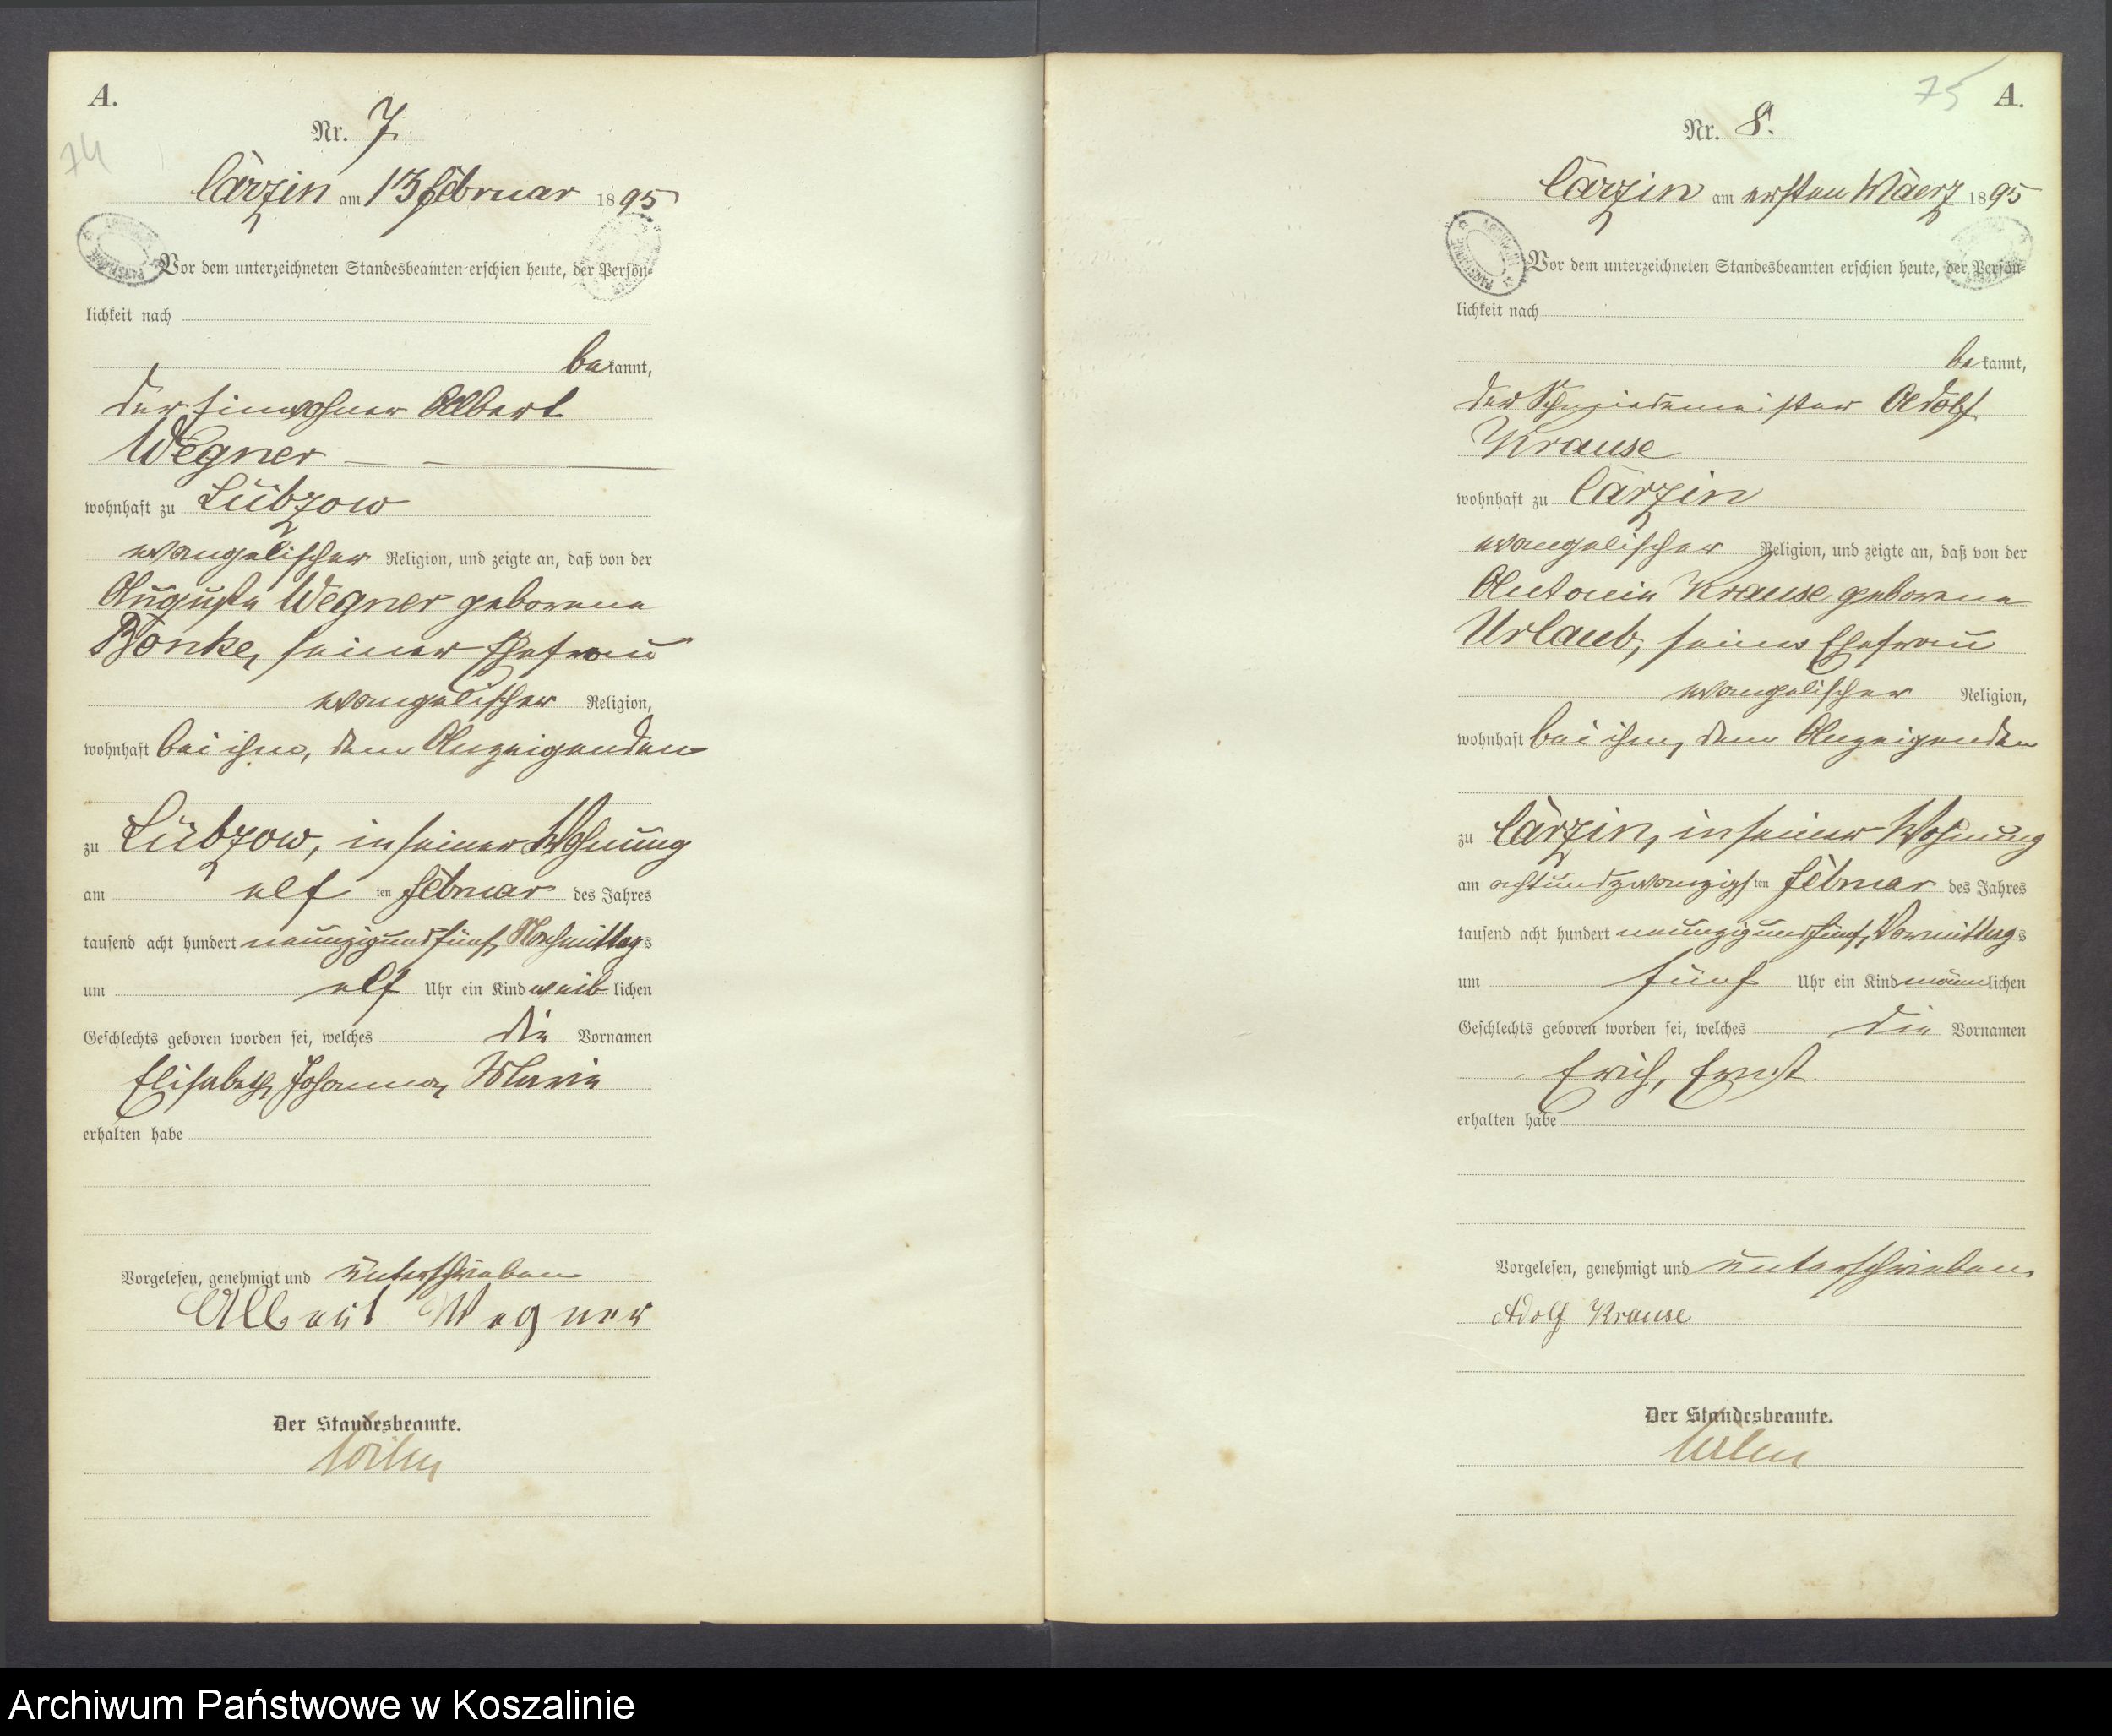 A.
74
Nr. 7.
Carzin am 13 Februar 1895
Vor dem unterzeichneten Standesbeamten erschien heute, der Persön=
lichkeit nach
bekannt,
der Einwohner Albert
Wegner
wohnhaft zu Lübzow
evangelischer Religion, und zeigte an, daß von der
Auguste Wegner geborene
Bonke, seiner Ehefrau
evangelischer Religion,
wohnhaft bei ihm, dem Anzeigenden
zu Lübzow, in seiner Wohnung
am elf ten Februar des Jahres
tausend acht hundert neunzig und fünf, Nachmittags
um elf Uhr ein Kind weiblichen
Geschlechts geboren worden sei, welches die Vornamen
Elisabeth, Johanna, Marie
erhalten habe
Vorgelesen, genehmigt und unterschrieben
Albert Wegner
Der Standesbeamte.
75 A.
Nr. 8.
Carzin am ersten Maerz 1895
Vor dem unterzeichneten Standesbeamten erschien heute, der Persön=
lichkeit nach
bekannt,
der Schmiedemeister Adolf
Krause
wohnhaft zu Carzin
evangelischer Religion, und zeigte an, daß von der
Antonie Krause geborene
Urlaub, seiner Ehefrau
evangelischer Religion,
wohnhaft bei ihm, dem Anzeigenden
zu Carzin, in seiner Wohnung
am achtundzwanzigsten Februar des Jahres
tausend acht hundert neunzig und fünf, Vormittags
um fünf Uhr ein Kind männlichen
Geschlechts geboren worden sei, welches die Vornamen
Erich, Ernst.
erhalten habe
Vorgelesen, genehmigt und unterschrieben
Adolf Krause
Der Standesbeamte.
Archiwum Państwowe w Koszalinie